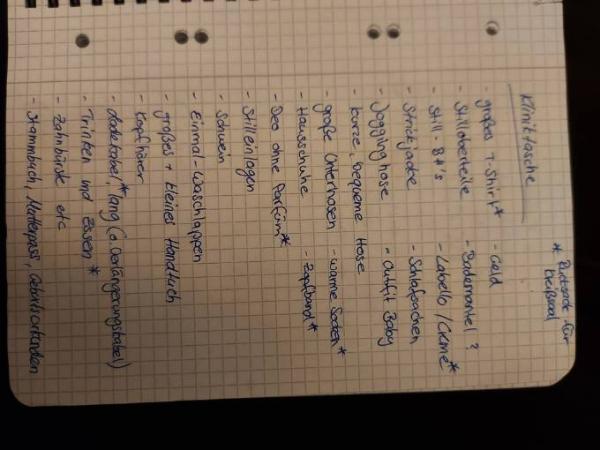 * Rucksack für
Kreißsaal
Kliniktasche
- großes T-Shirt* - Geld
- Stilloberteile - Bademantel ?
- Still-BH's - Labello / Creme*
- Strickjacke - Schlafsachen
- Jogginghose - Outfit Baby
- kurze, bequeme Hose
- große Unterhosen - warme Socken*
- Hausschuhe - Zopfband*
- Deo ohne Parfüm*
- Stilleinlagen
- Schwein
- Einmal-Waschlappen
- großes + kleines Handtuch
- Kopfhörer
- Ladekabel*, lang (o. Verlängerungskabel)
- Trinken und Essen*
- Zahnbürste etc
- Stammbuch, Mutterpass, Geburtsurkunden